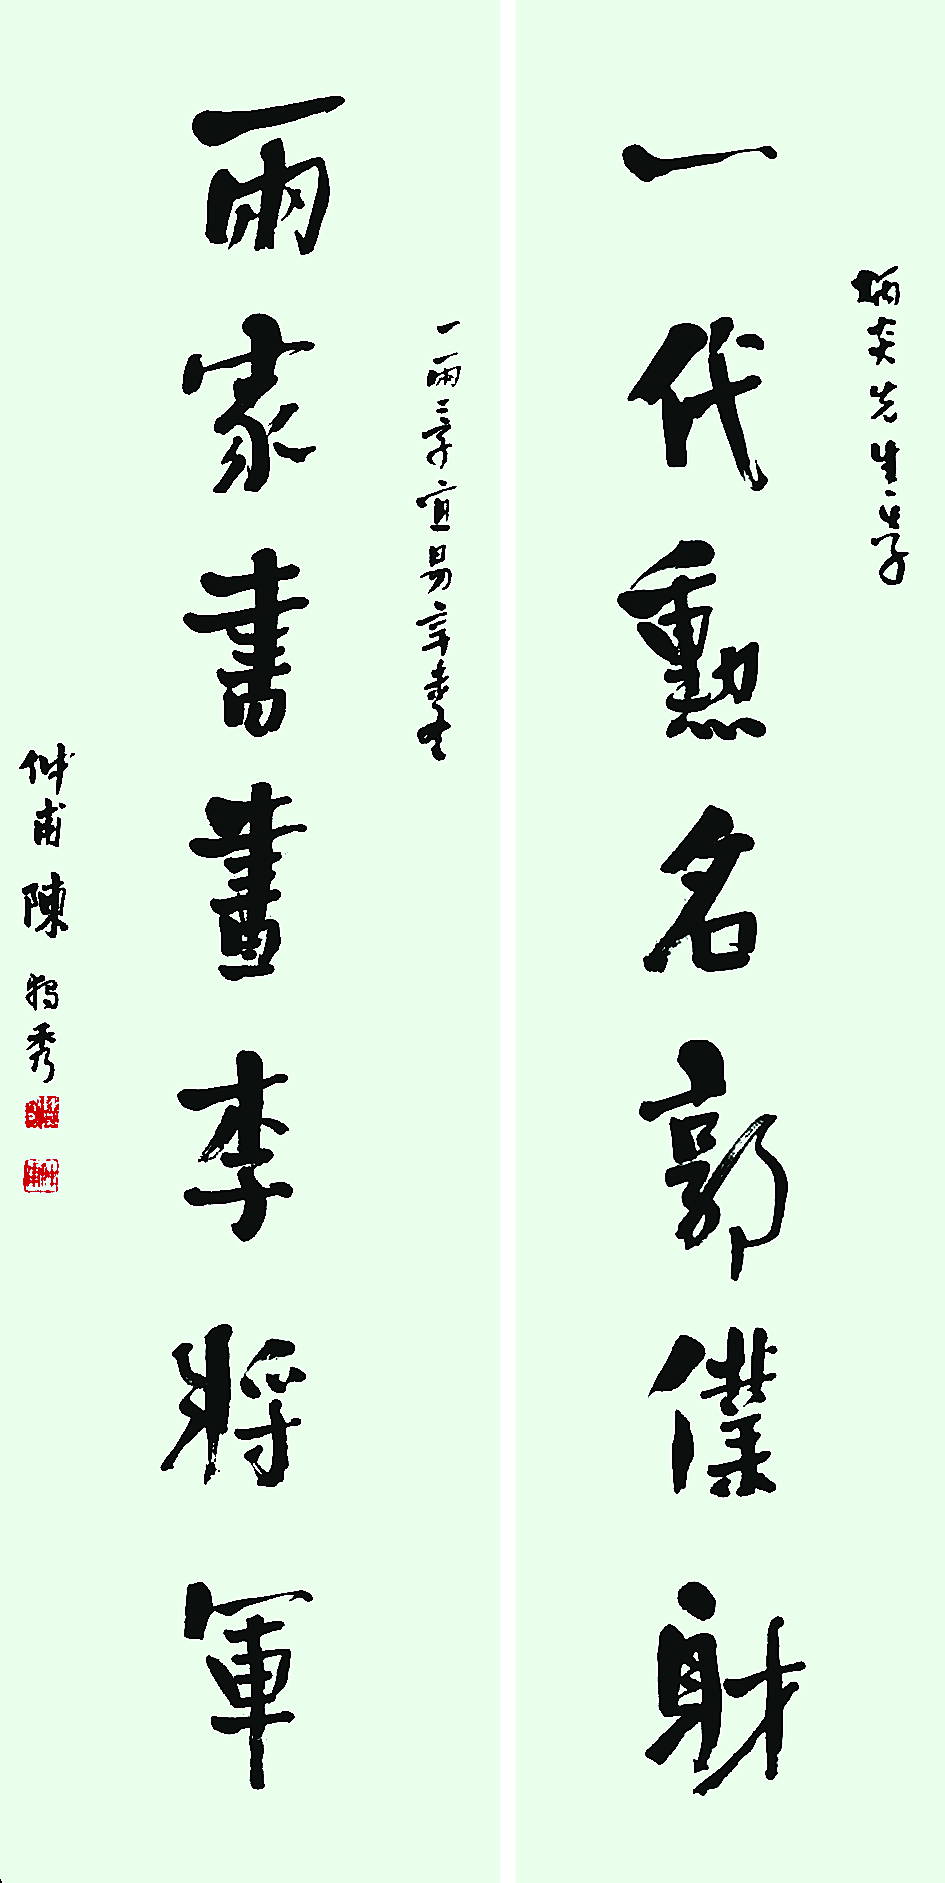 炳炎先生正字
一代勳名郭僕射
一兩二字宜易
兩家書畫李將軍
仲甫陳獨秀